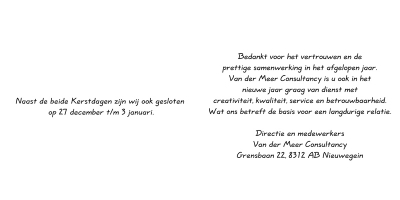 Naast de beide Kerstdagen zijn wij ook gesloten
op 27 december t/m 3 januari.
Bedankt voor het vertrouwen en de
prettige samenwerking in het afgelopen jaar.
Van der Meer Consultancy is u ook in het
nieuwe jaar graag van dienst met
creativiteit, kwaliteit, service en betrouwbaarheid.
Wat ons betreft de basis voor een langdurige relatie.
Directie en medewerkers
Van der Meer Consultancy
Grensbaan 22, 8312 AB Nieuwegein